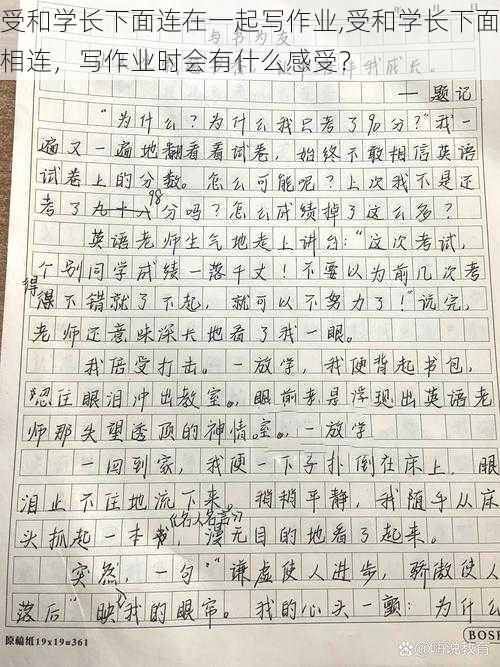 受和学长下面连在一起写作业,受和学长下面
相连，写作业时会有什么感受?
与书为友
伴我成长。
——题记
“为什么？为什么我只考了90分？”我一
遍又一遍地翻看着试卷，始终不敢相信英语
试卷上的分数。怎么可能呢？上次我不是还
98
考了九十八分吗？怎么成绩掉了这么多？
英语老师生气地走上讲台：“这次考试，
个别同学成绩一落千丈！不要以为前几次考
得
得不错就了不起，就可以不努力了！”说完，
老师还意味深长地看了我一眼。
我倍受打击。一放学，我便背起书包，
忍住眼泪冲出教室。眼前老是浮现出英语老
师那失望透顶的神情。室。一放学
一回到家，我便一下子扑倒在床上，眼
泪止不住地流下来。稍稍平静，我随手从床
《名人名言》
头抓起一本书，漫无目的地看了起来。
突然，一句“谦虚使人进步，骄傲使人
落后”映入我的眼帘。我的心头一颤：为什么
原稿纸19x19=361
BOSH